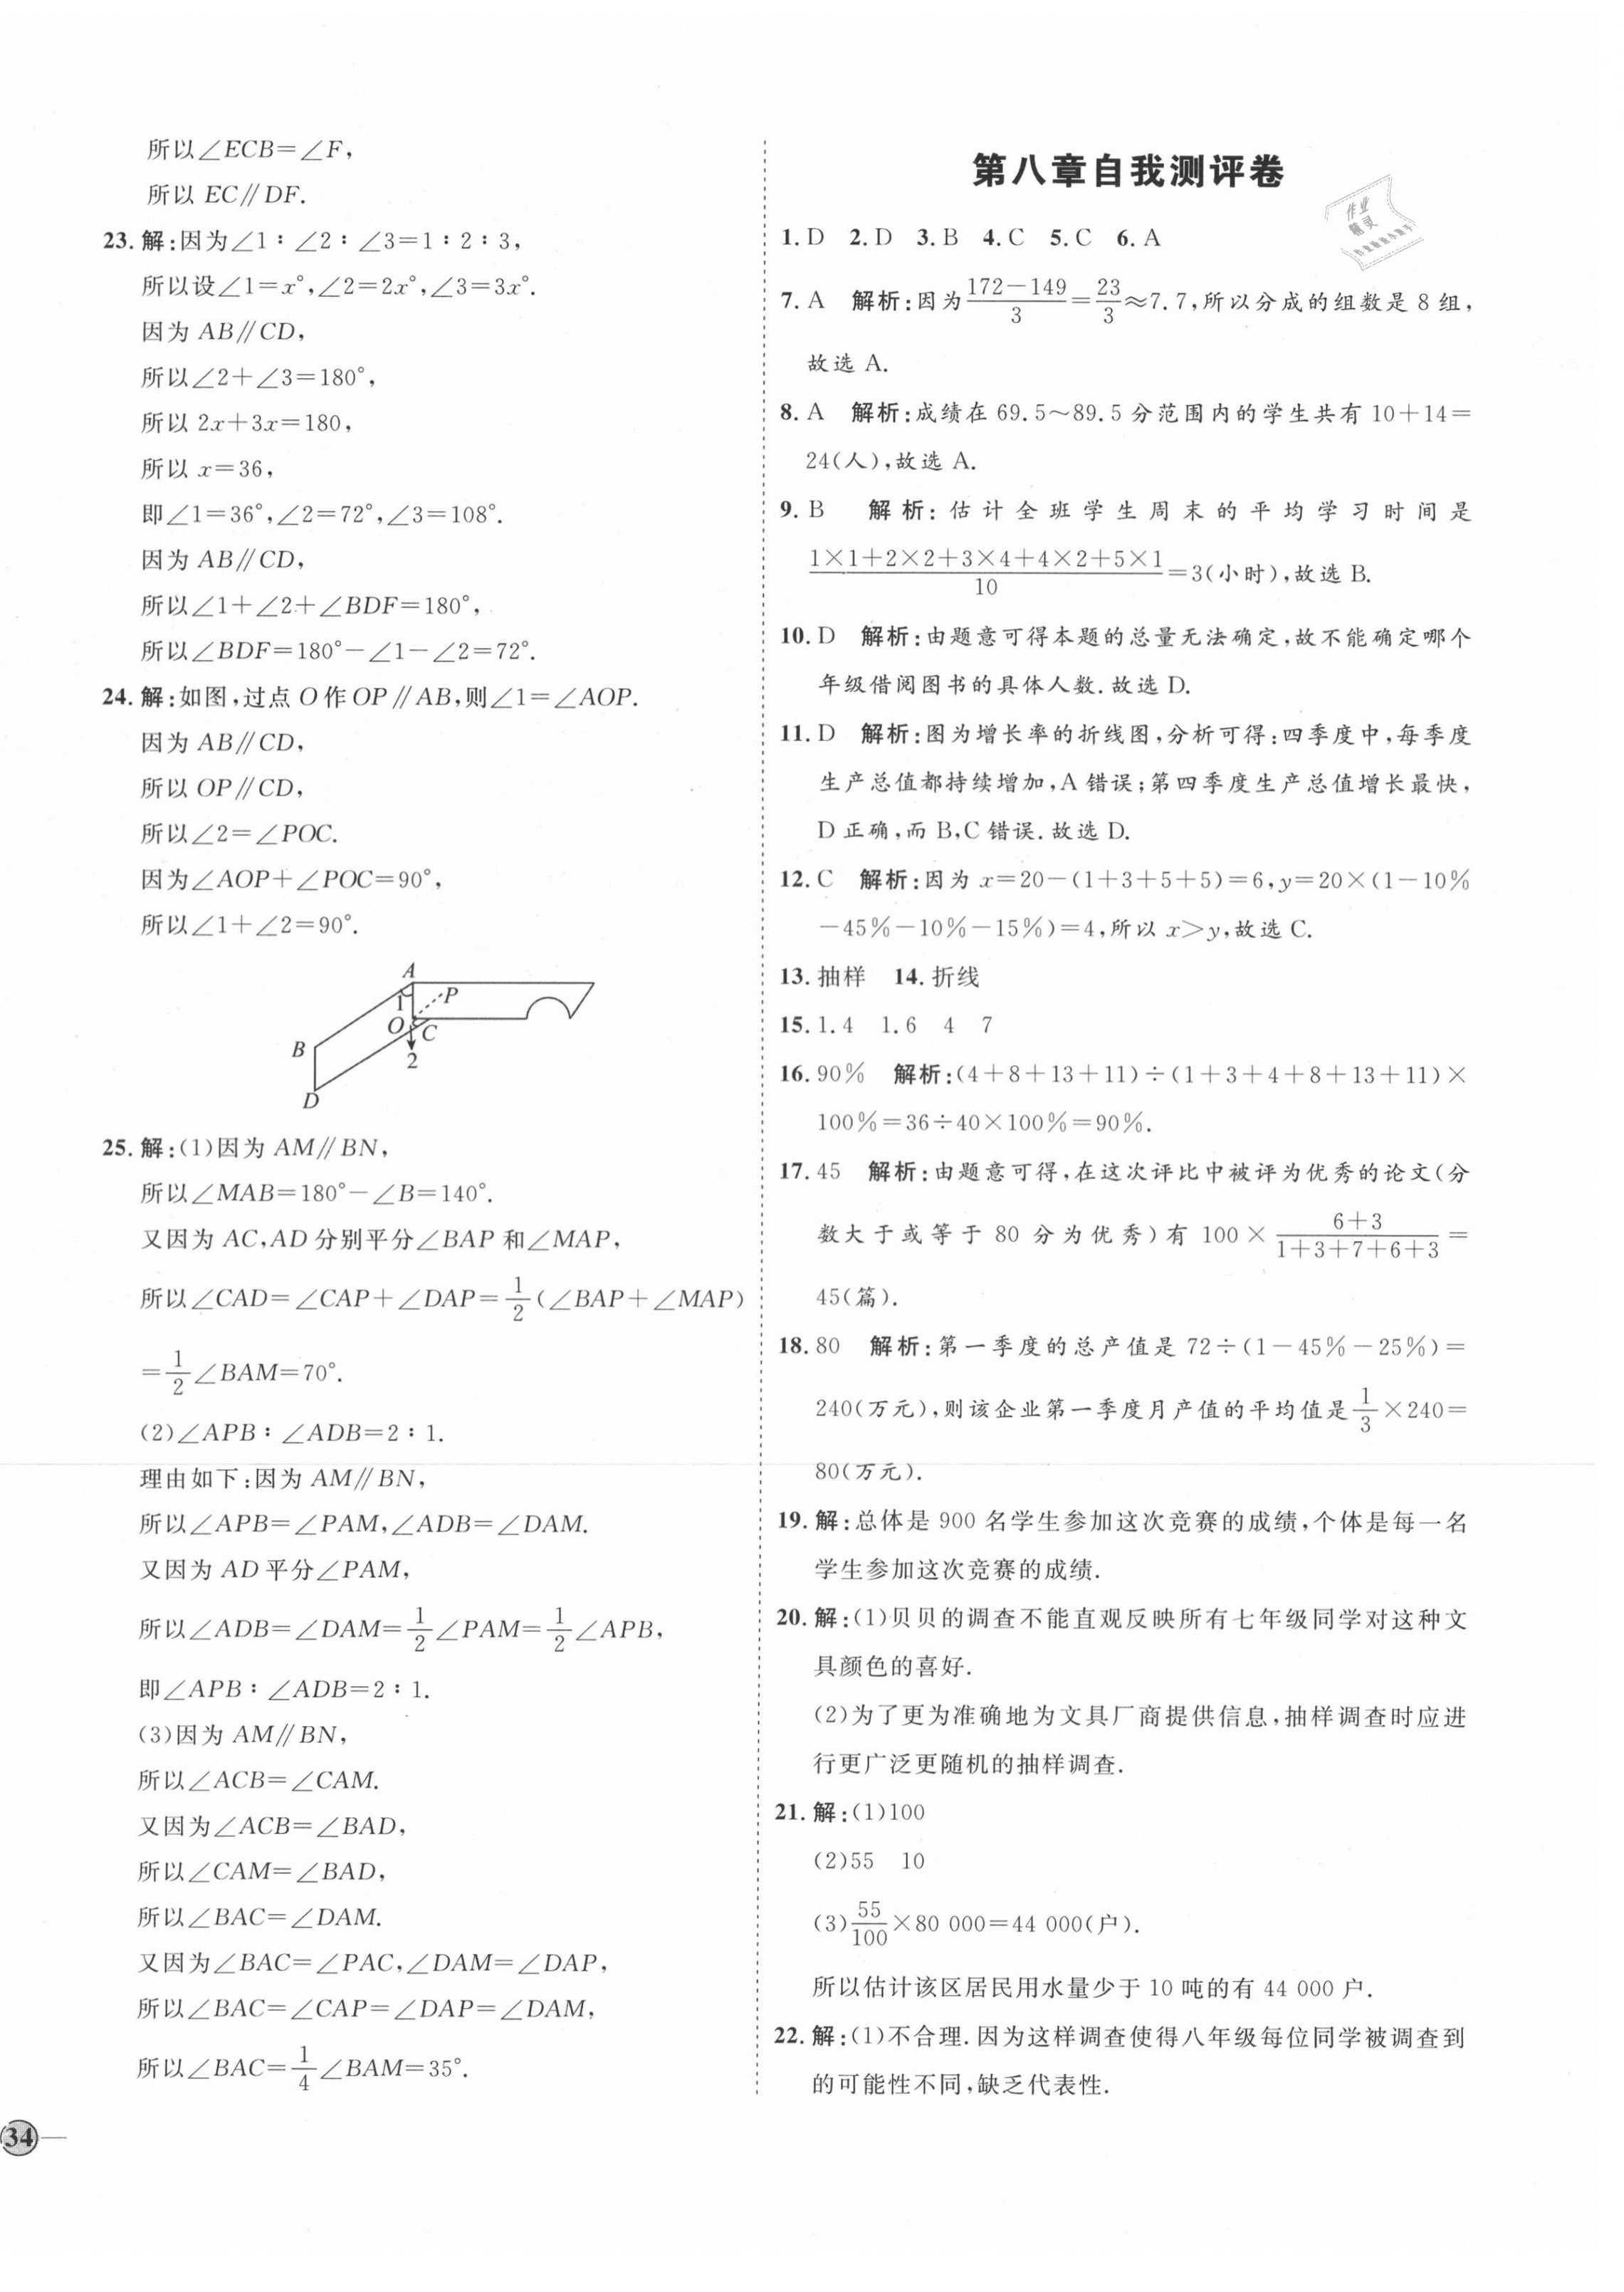 所以∠ECB=∠F,
所以 EC∥DF.
23. 解:因为∠1∶∠2∶∠3=1∶2∶3,
所以设∠1=x°,∠2=2x°,∠3=3x°.
因为 AB∥CD,
所以∠2+∠3=180°,
所以 2x+3x=180,
所以 x=36,
即∠1=36°,∠2=72°,∠3=108°.
因为 AB∥CD,
所以∠1+∠2+∠BDF=180°,
所以∠BDF=180°-∠1-∠2=72°.
24. 解:如图,过点 O 作 OP∥AB,则∠1=∠AOP.
因为 AB∥CD,
所以 OP∥CD,
所以∠2=∠POC.
因为∠AOP+∠POC=90°,
所以∠1+∠2=90°.
A
1
P
O
C
B
2
D
25. 解:(1)因为 AM∥BN,
所以∠MAB=180°-∠B=140°.
又因为 AC,AD 分别平分∠BAP 和∠MAP,
所以∠CAD=∠CAP+∠DAP=1/2(∠BAP+∠MAP)
=1/2∠BAM=70°.
(2)∠APB∶∠ADB=2∶1.
理由如下:因为 AM∥BN,
所以∠APB=∠PAM,∠ADB=∠DAM.
又因为 AD 平分∠PAM,
所以∠ADB=∠DAM=1/2∠PAM=1/2∠APB,
即∠APB∶∠ADB=2∶1.
(3)因为 AM∥BN,
所以∠ACB=∠CAM.
又因为∠ACB=∠BAD,
所以∠CAM=∠BAD,
所以∠BAC=∠DAM.
又因为∠BAC=∠PAC,∠DAM=∠DAP,
所以∠BAC=∠CAP=∠DAP=∠DAM,
所以∠BAC=1/4∠BAM=35°.
34
第八章自我测评卷
作业
精灵
1. D 2. D 3. B 4. C 5. C 6. A
7. A 解析:因为(172-149)/3=23/3≈7.7,所以分成的组数是 8 组,
故选 A.
8. A 解析:成绩在 69.5~89.5 分范围内的学生共有 10+14=
24(人),故选 A.
9. B 解析:估计全班学生周末的平均学习时间是
(1×1+2×2+3×4+4×2+5×1)/10=3(小时),故选 B.
10. D 解析:由题意可得本题的总量无法确定,故不能确定哪个
年级借阅图书的具体人数.故选 D.
11. D 解析:图为增长率的折线图,分析可得:四季度中,每季度
生产总值都持续增加,A 错误;第四季度生产总值增长最快,
D 正确,而 B,C 错误.故选 D.
12. C 解析:因为 x=20-(1+3+5+5)=6,y=20×(1-10%
-45%-10%-15%)=4,所以 x>y,故选 C.
13. 抽样 14. 折线
15. 1.4 1.6 4 7
16. 90% 解析:(4+8+13+11)÷(1+3+4+8+13+11)×
100%=36÷40×100%=90%.
17. 45 解析:由题意可得,在这次评比中被评为优秀的论文(分
数大于或等于 80 分为优秀)有 100×(6+3)/(1+3+7+6+3)=
45(篇).
18. 80 解析:第一季度的总产值是 72÷(1-45%-25%)=
240(万元),则该企业第一季度月产值的平均值是1/3×240=
80(万元).
19. 解:总体是 900 名学生参加这次竞赛的成绩,个体是每一名
学生参加这次竞赛的成绩.
20. 解:(1)贝贝的调查不能直观反映所有七年级同学对这种文
具颜色的喜好.
(2)为了更为准确地为文具厂商提供信息,抽样调查时应进
行更广泛更随机的抽样调查.
21. 解:(1)100
(2)55 10
(3)55/100×80 000=44 000(户).
所以估计该区居民用水量少于 10 吨的有 44 000 户.
22. 解:(1)不合理.因为这样调查使得八年级每位同学被调查到
的可能性不同,缺乏代表性.